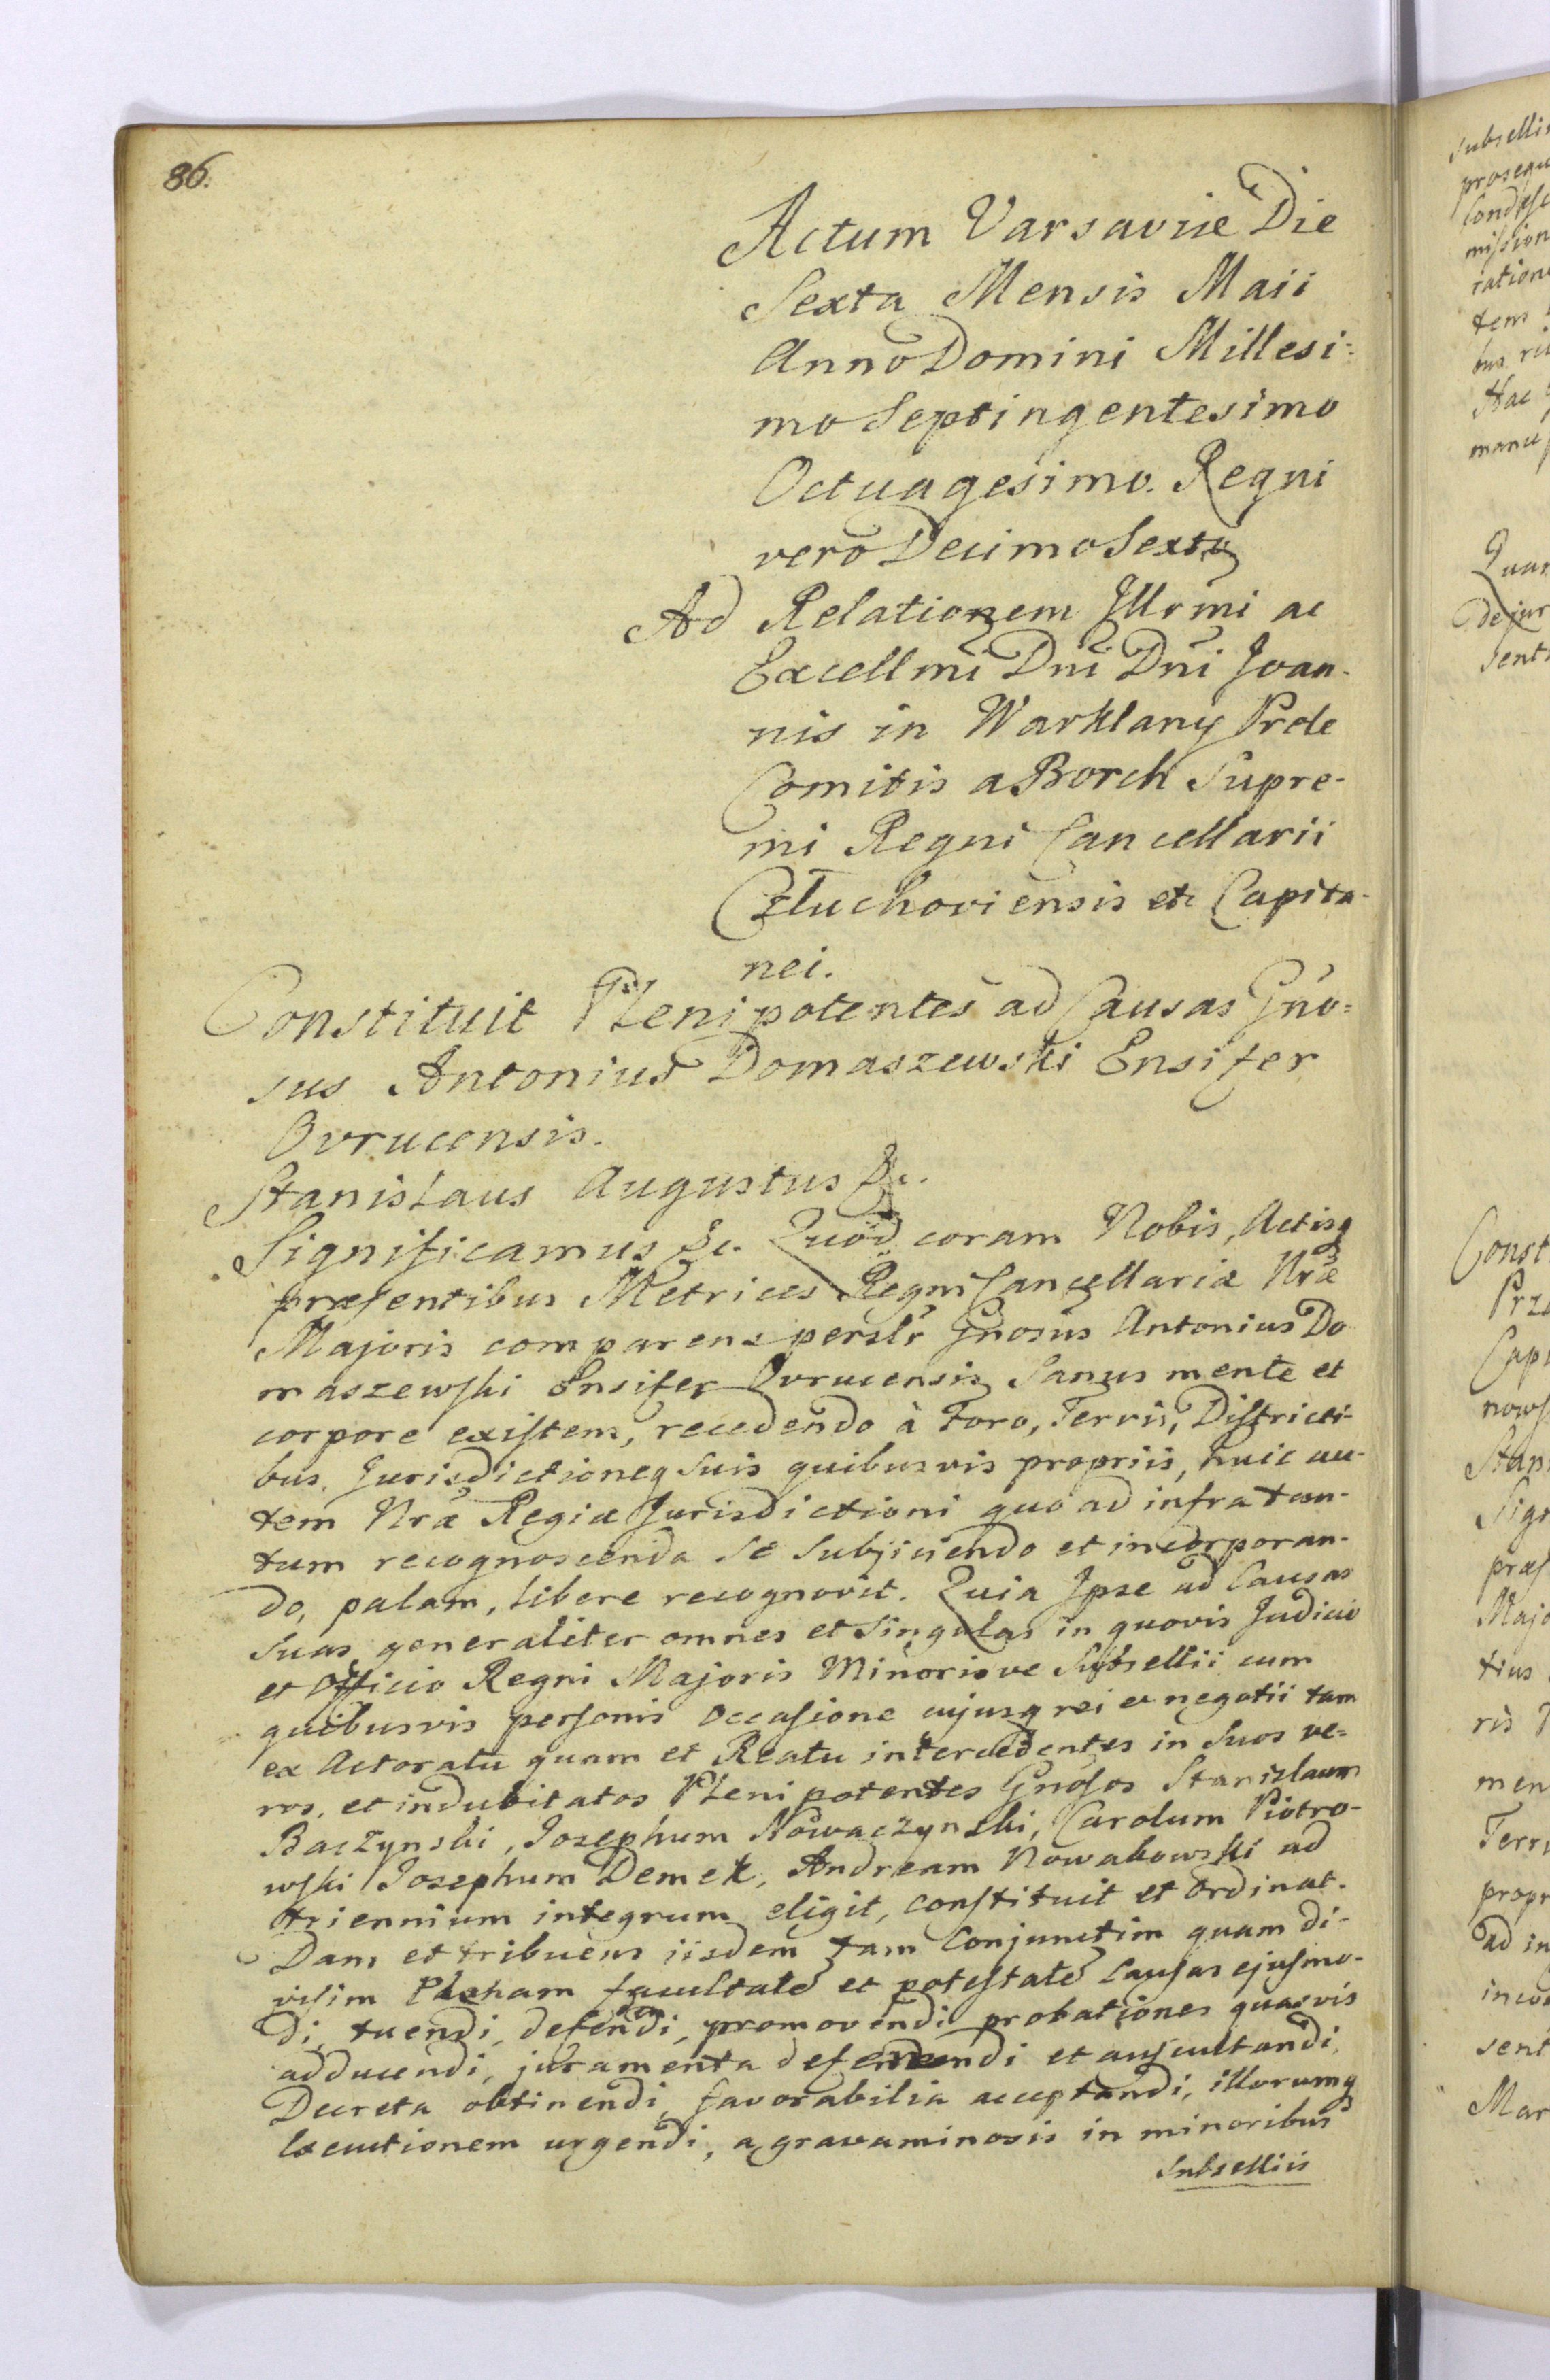 86.
Actum Varsaviæ Die
Sexta Mensis Maii
Anno Domini Millesi=
mo Septingentesimo
Octuagesimo. Regni
vero Decimo Sexto
Ad Relationem Illrmi ac
Excellmi Dni Dni Joan-
nis in Warklany Prole
Comitis a Borch Supre-
mi Regni Cancellarii
Człuchoviensis etc Capita-
nei.
Constituit Plenipotentes ad Causas Gno=
sus Antonius Domaszewski Ensifer
Ovrucensis.
Stanislaus Augustus &c.
Significamus &c. Quod coram Nobis, Actisq
præsentibus Metrices Regni Cancellariæ Nræ
Majoris comparens perslr Gnosus Antonius Do
maszewski Ensifer Ovrucensis Sanus mente et
corpore existens, recedendo à Foro, Terris, Districti-
bus, Jurisdictioneq suis quibusvis propriis, huic au-
tem Nræ Regiæ Jurisdictioni quo ad infra tan-
tum recognoscenda se subjiciendo et incorporan-
do, palam, libere recognovit. Quia Ipse ad Causas
suas generaliter omnes et singulas in quovis Judicio
et Officio Regni Majoris Minorisve Subsellii cum
quibusvis personis occasione cujusq rei et negotii tam
ex Actoratu quam et Reatu intercedentes in suos ve=
ros, et indubitatos Plenipotentes Gnosos Stanislaum
Baczynski, Josephum Nowaczynski, Carolum Piotro-
wski Josephum Demek, Andream Nowakowski ad
triennium integrum eligit, constituit et ordinat.
Dans et tribuens iisdem tam conjunctim quam di-
visim plenam facultatē et potestatē causas ejusmo-
di, tuendi, defendi, promovendi probationes quasvis
adducendi, juramenta deferendi et auscultandi,
Decreta obtinendi, favorabilia acceptandi, illorumq
Executionem urgendi, a gravaminosis in minoribus
Subselliis
Quan
Const
Prza
Capi
nows
Stan
Sign
præs
Majo
tius
ris
men
Terri
propr
ad in
incor
sent
Mar